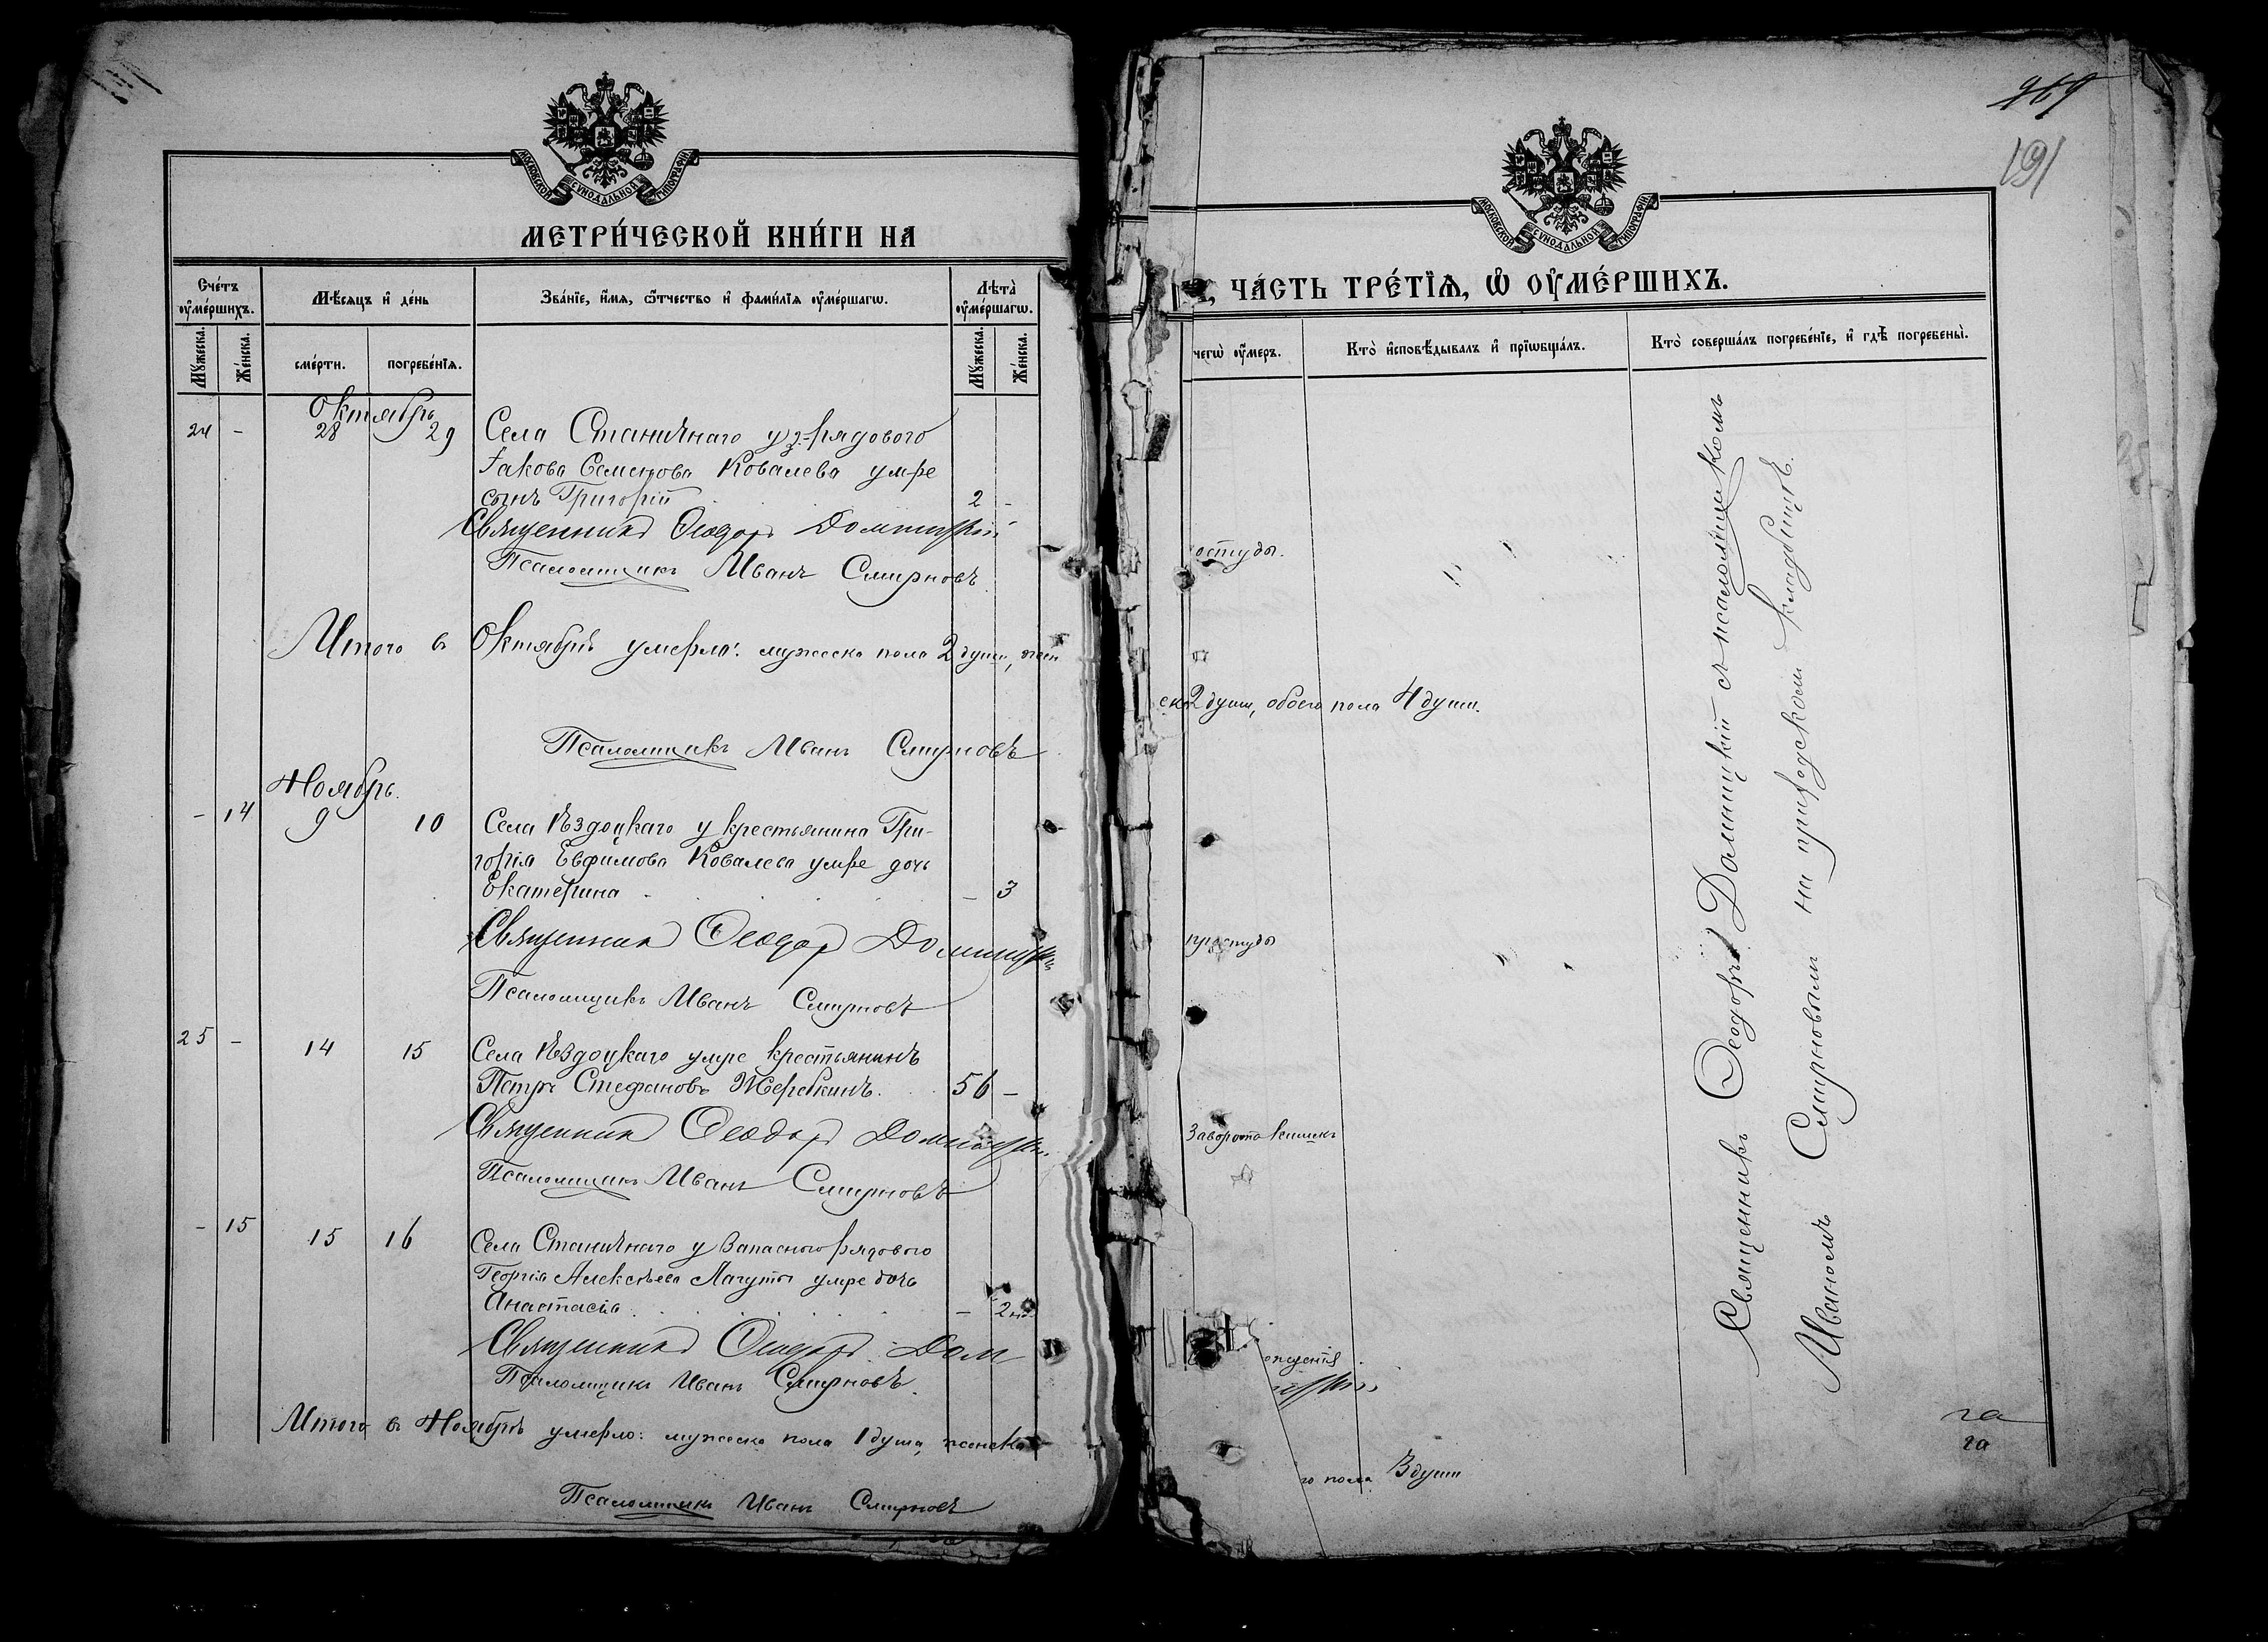 МОСКОВСКОЙ СѴНОДАЛЬНОЙ ТИПОГРАФІИ
МЕТРИ́ЧЕСКОЙ КНИ́ГИ НА
Сче́тъ ᲂу҆ме́ршихъ.
Мѣ́сяцъ и҆ де́нь
Зва́нїе, и҆́мя, ѻ҆́тчество и҆ фами́лїя ᲂу҆ме́ршагѡ.
Лѣ́та ᲂу҆ме́ршагѡ.
Мꙋ́жеска.
Же́нска.
сме́рти.
погребе́нїя.
Мꙋ́жеска.
Же́нска.
Октябрь
24 - 28 29 Села Станичнаго у з. рядового
Іакова Семенова Ковалева умре
сынъ Григорій 2 -
Священникъ Ѳеодоръ Домницкій
Псаломщикъ Иванъ Смирновъ
Итого въ Октябрѣ умерло: мужеска пола 2 души, жен
Псаломщикъ Иванъ Смирновъ
Ноябрь.
- 14 9 10 Села Ѣздоцкаго у крестьянина Гри-
горія Евфимова Ковалева умре дочь
Екатерина - 3
Священникъ Ѳеодоръ Домницкій
Псаломщикъ Иванъ Смирновъ
25 - 14 15 Села Ѣздоцкаго умре крестьянинъ
Петръ Стефановъ Жеребкинъ. 56 -
Священникъ Ѳеодоръ Домницкій
Псаломщикъ Иванъ Смирновъ
- 15 15 16 Села Станичнаго у запасного рядового
Георгія Алексѣева Лагуты умре дочь
Анастасія - 2 нд.
Священникъ Ѳеодоръ Дом
Псаломщикъ Иванъ Смирновъ.
Итого въ Ноябрѣ умерло: мужеска пола 1 душа, женска
Псаломщикъ Иванъ Смирновъ
969
191
МОСКОВСКОЙ СѴНОДАЛЬНОЙ ТИПОГРАФІИ
, ЧА́СТЬ ТРЕ́ТЇЯ, Ѡ҆ ᲂУ҆МЕ́РШИХЪ.
чегѡ̀ ᲂу҆́меръ.
Кто̀ и҆сповѣ́дывалъ и҆ прїѡбща́лъ.
Кто̀ соверша́лъ погребе́нїе, и҆ гдѣ̀ погребены̀.
остуды.
ска 2 душ, обоего пола 4 душ.
простуды
Заворота кишекъ
го пола 3 души
Священникъ Ѳеодоръ Домницкій съ псаломщикомъ
Иваномъ Смирновымъ на приходскомъ кладбищѣ.